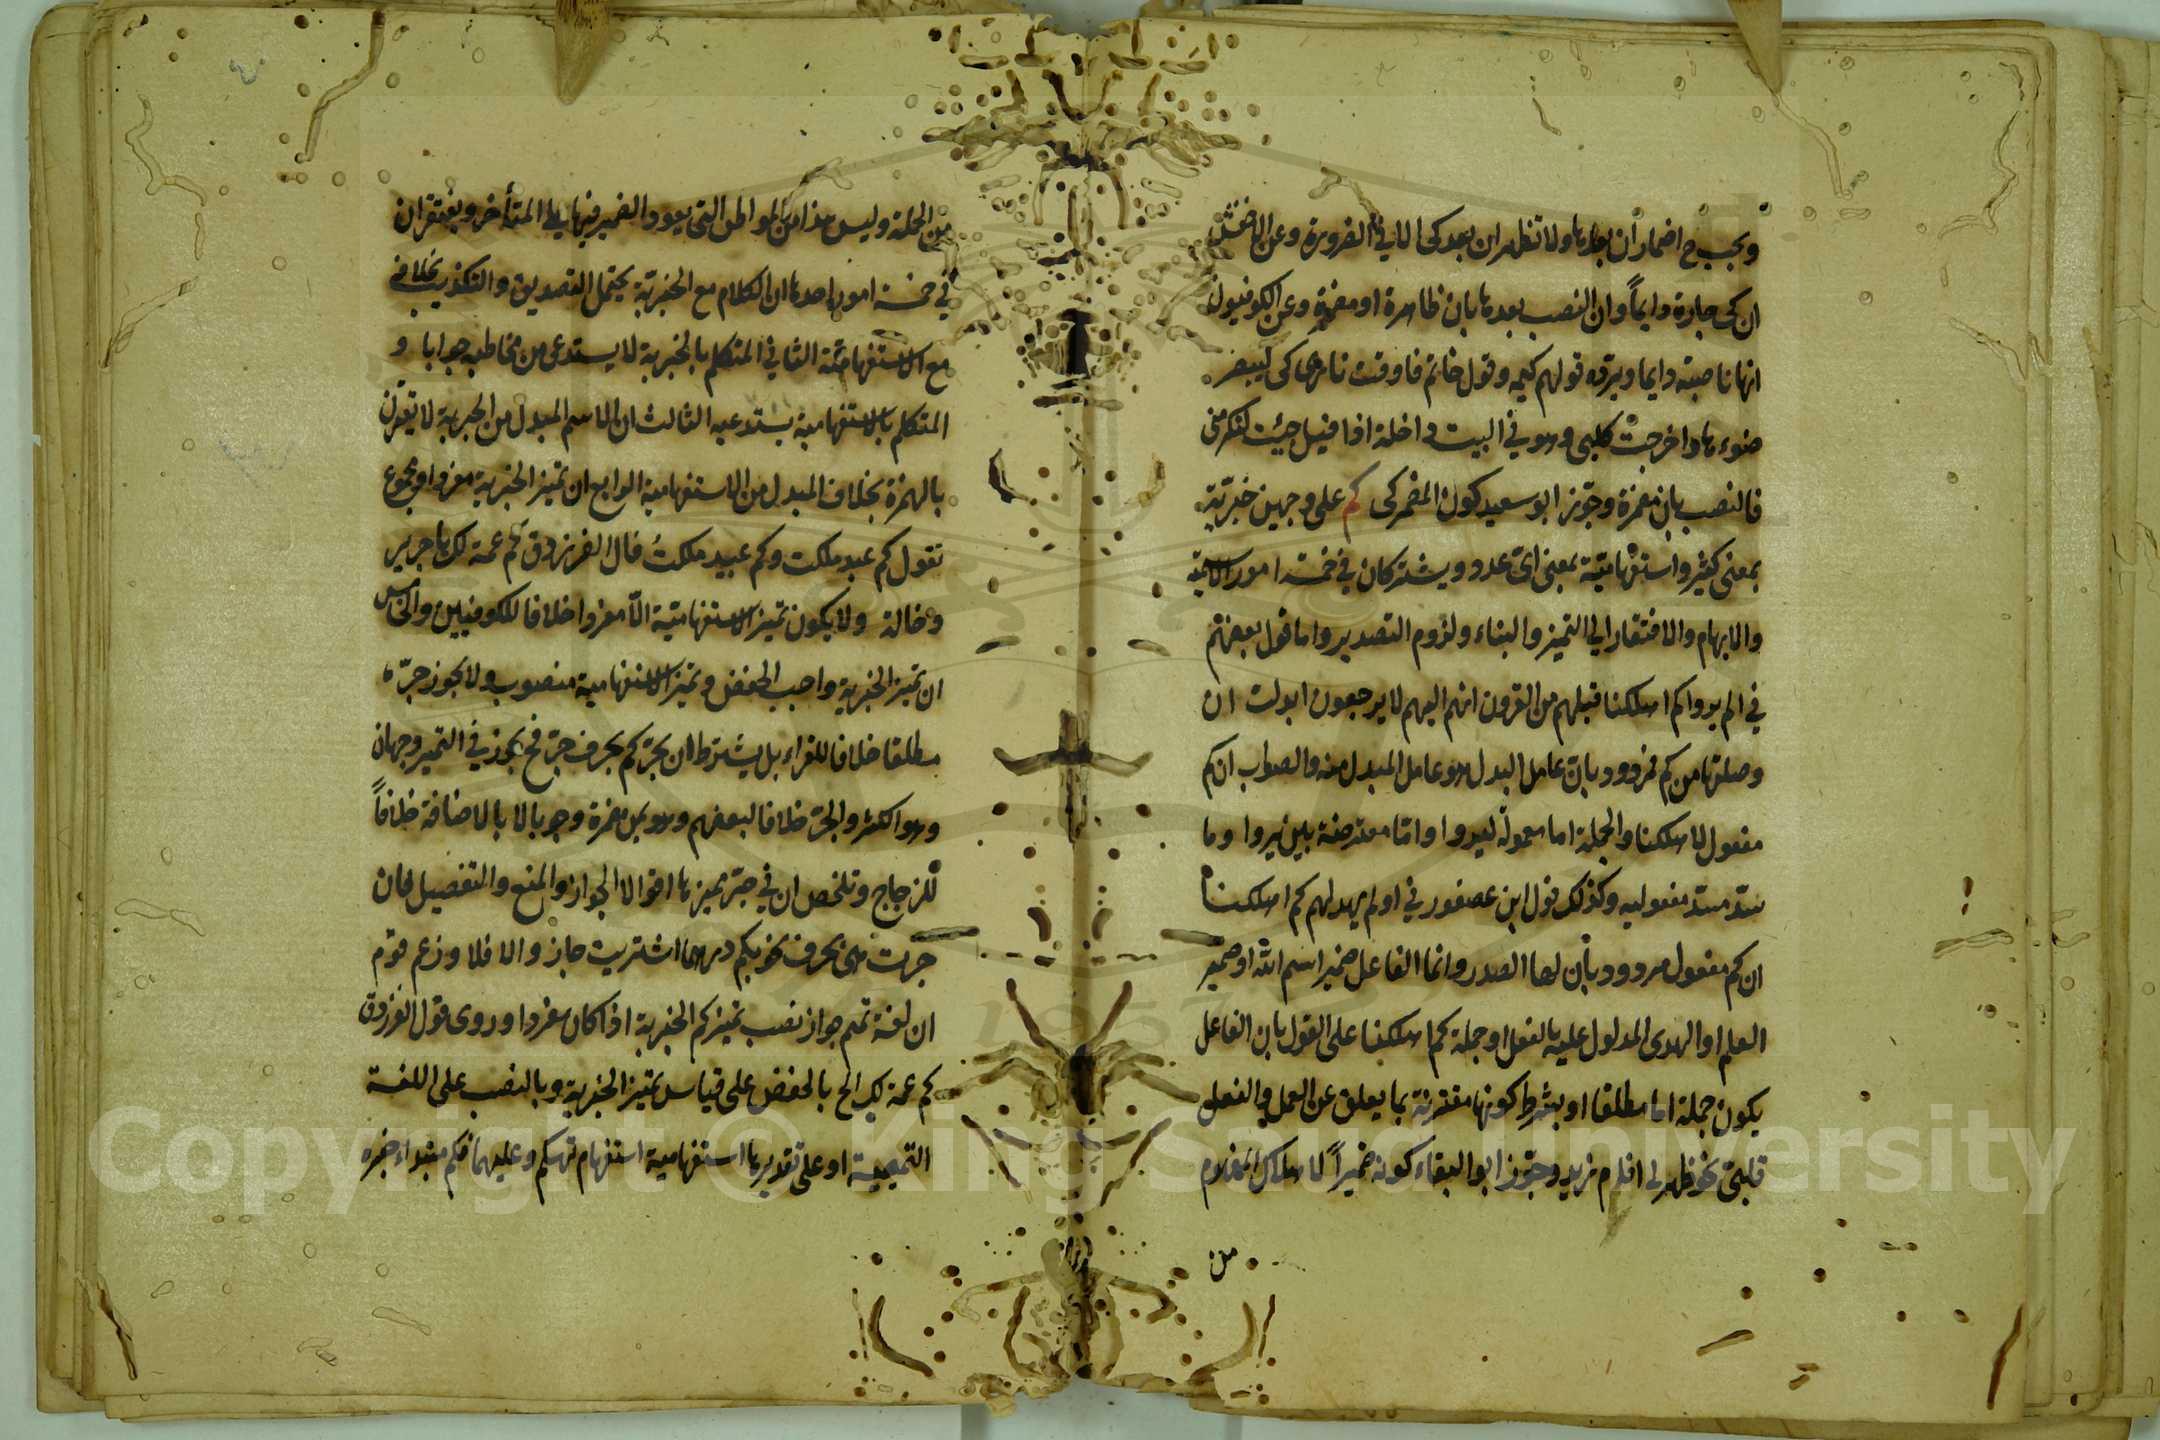 ويجب ح اضمار أن بعدها ولا تظهر ان بعد كى الا في الضرورة وعن الاخفش
ان كى جارة دايماً وان النصب بعدها بان ظاهرة او مضمرة وعن الكوفيون
انها ناصبة دايما ويرده قولهم كيمه وقول حاتم فاوقدت نارى كى ليبصر
ضوءها واخرجت كلبى وهو في البيت داخله اذا قيل جيئت لتكرمنى
فالنصب بان مضمرة وجوّز ابو سعيد كون المضمر كى كم على وجهين خبريّة
بمعنى كثير واستفهاميّة بمعنى اىّ عدد ويشتركان في خمسة امور الاسميّة
والابهام والافتقار الى التميز والبناء ولزوم التصدير واما قول بعضهم
في الم يروا كم اهلكنا قبلهم من القرون انهم اليهم لا يرجعون ابدلت ان
وصلتها من كم فمردود بانّ عامل البدل هو عامل المبدل منه والصواب ان كم
مفعول لاهلكنا والجملة اما معمولة ليروا وامّا معترضة بين يروا وما
سدّ مسدّ مفعوليه وكذلك قول ابن عصفور في اولم يهد لهم كم اهلكنا
ان كم مفعول مردود بأن لها الصدر وانما الفاعل ضمير اسم الله او ضمير
العلم او الهدى المدلول عليه بالفعل او جملة كم اهلكنا على القول بان الفاعل
يكون جملة اما مطلقا او بشرط كونها مقترنة بما يعلق عن العمل والفعل
قلبىّ نحو ظهر لى اقام زيد وجوّز ابو البقاء كونه ضميراً لاهلاك المفهوم
من
من الجملة وليس هذا من المواطن التى يعود الضمير فيها على المتأخر ويفترقان
في خمسة امور احدها ان الكلام مع الخبريّة يحتمل التصديق والتكذيب بخلافه
مع الاستفهاميّة الثاني المتكلم بالخبرية لا يستدعى من مخاطبه جوابا و
المتكلم بالاستفهامية يستدعيه الثالث ان الاسم المبدل من الخبرية لا يقترن
بالهمزة بخلاف المبدل من الاستفهامية الرابع ان تميز الخبرية مفرد او مجموع
تقول كم عبد ملكت وكم عبيد ملكتُ قال الفرزدق كم عمة لك يا جرير
وخالة ولا يكون تميز الاستفهاميّة الّا مفردا خلافا للكوفيين والخامس
ان تميز الخبرية واجب الخفض وتميز الاستفهامية منصوب ولا يجوز جرّه
مطلقا خلافا للفراء بل يشترط ان يجرّ كم بحرف جرّ فح يجوز في التميز وجهان
وهو الكثير والجرّ خلافا لبعضهم وهو بمن مضمرة وجوبا لا بالاضافة خلافاً
للزجاج وتلخص ان في جرّ تميزها اقوالا الجواز والمنع والتفصيل فان
جرت هى بحرف نحو بكم درهما اشتريت جاز والا فلا وزعم قوم
ان لغة تميم جواز نصب تميز كم الخبرية اذا كان مفردا وروى قول الفرزدق
كم عمة لك الخ بالخفض على قياس تميز الخبرية وبالنصب على اللغة
التميمية او على تقديرها استفهامية استفهام تهكم وعليهما فكم مبتداء خبره
Copyright © King Saud University
1957